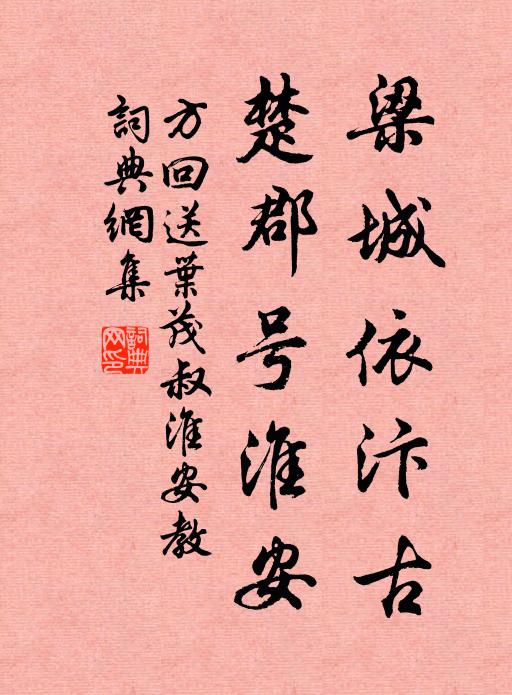 梁城依汴古
楚郡号淮安
方回送葉茂叔淮安教
詞典網集
詞典網印